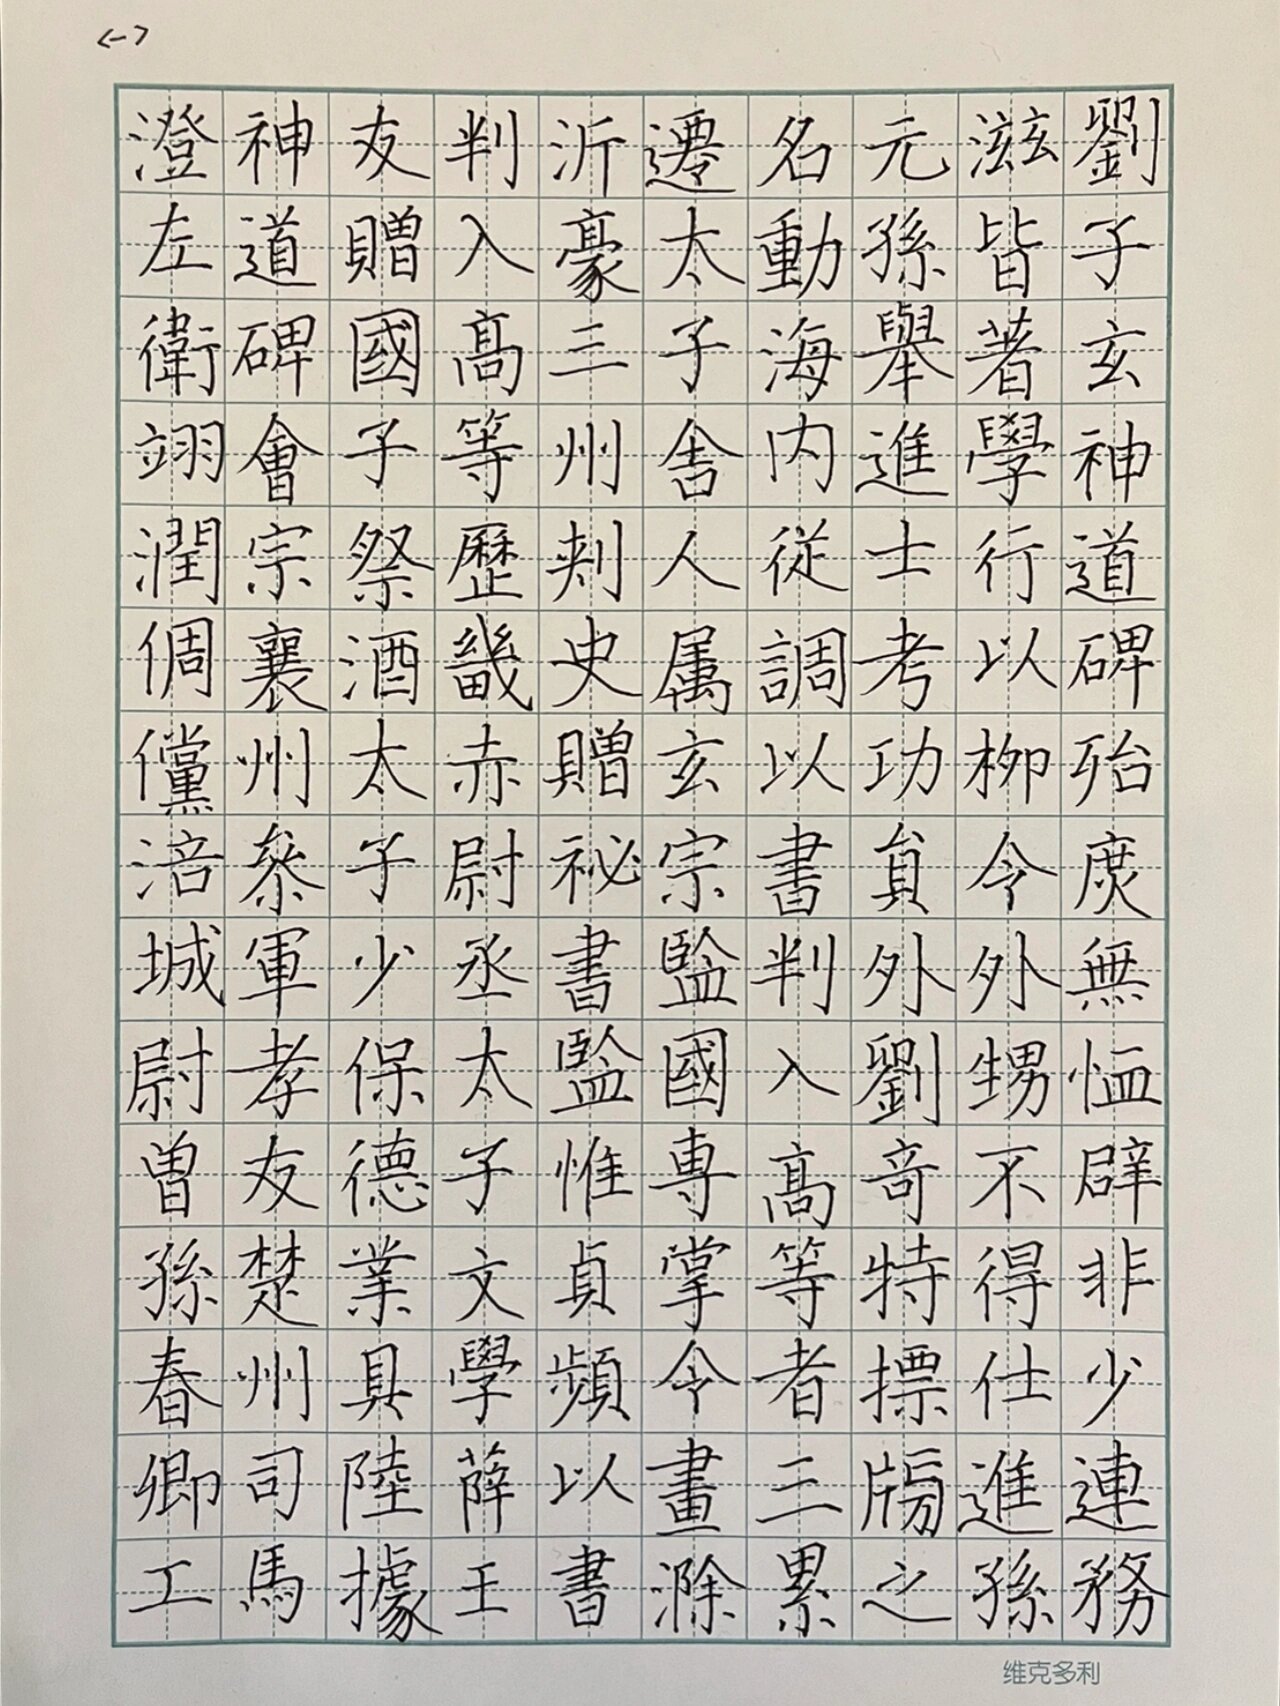 <一>
劉子玄神道碑殆庶無恤辟非少連務
滋皆著學行以柳令外甥不得仕進孫
元孫舉進士考功員外劉奇特摽牓之
名動海内從調以書判入髙等者三累
遷太子舍人属玄宗監國專掌令畫滁
沂豪三州刾史贈祕書監惟貞頻以書
判入髙等歷畿赤尉丞太子文學薛王
友贈國子祭酒太子少保德業具陸據
神道碑會宗襄州叅軍孝友楚州司馬
澄左衛翊潤倜儻涪城尉曾孫春卿工
维克多利